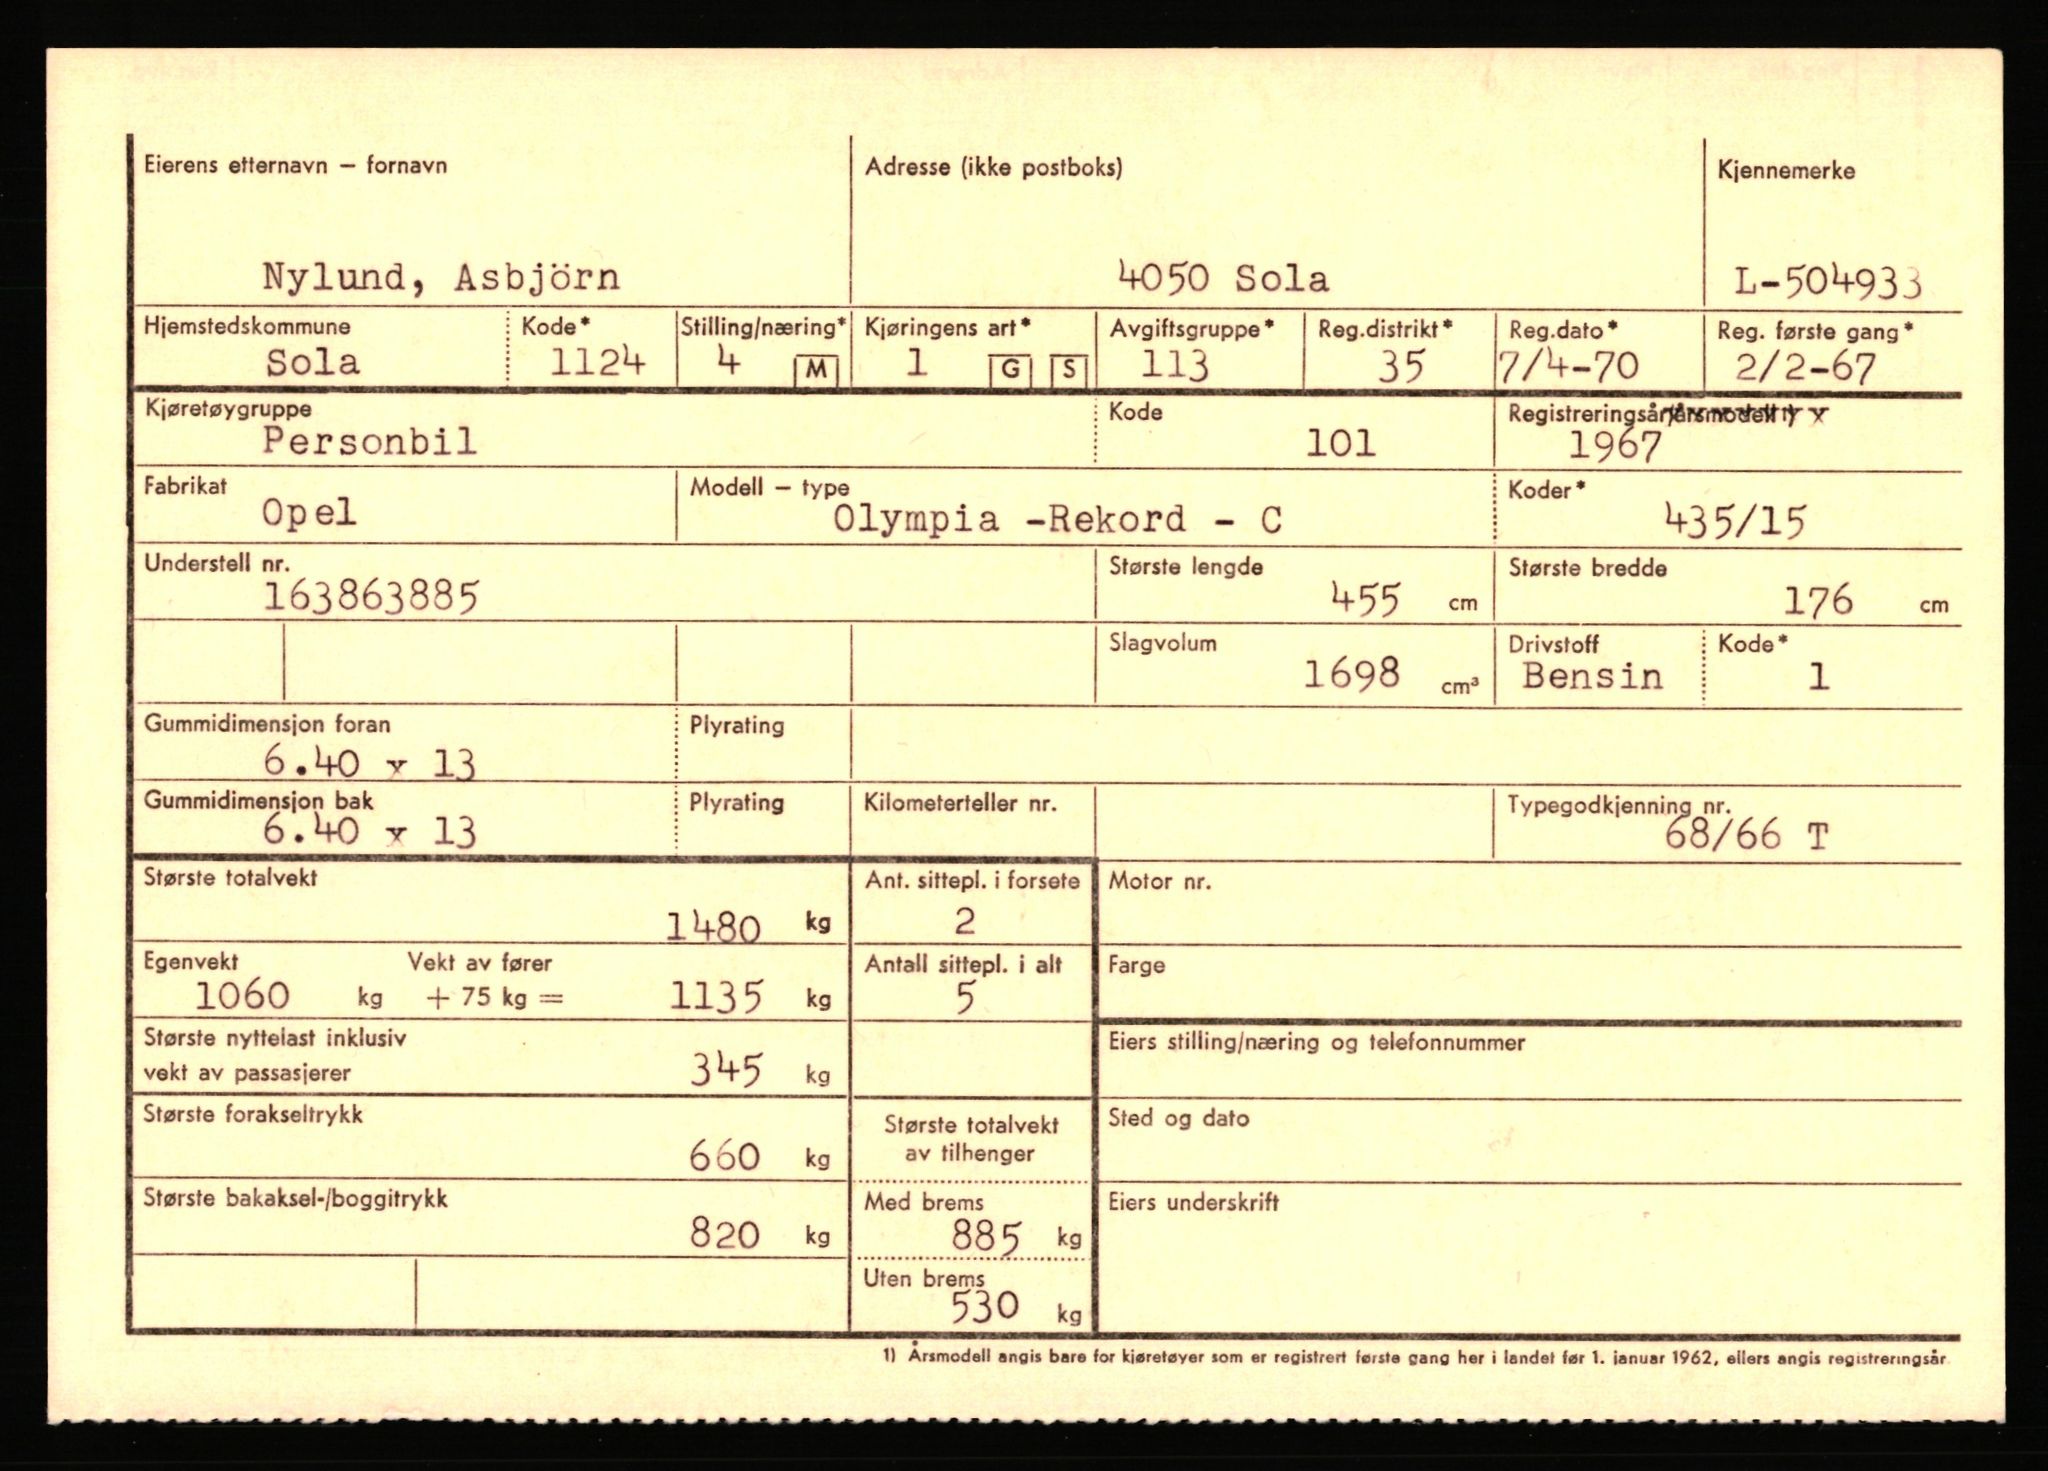 Eierens etternavn – fornavn Adresse (ikke postboks) Kjennemerke
Nylund, Asbjörn 4050 Sola L-504933
Hjemstedskommune Kode* Stilling/næring* Kjøringens art* Avgiftsgruppe* Reg.distrikt* Reg.dato* Reg. første gang*
Sola 1124 4 M 1 G S 113 35 7/4-70 2/2-67
Kjøretøygruppe Kode Registreringsår/årsmodell 1)
Personbil 101 1967
Fabrikat Modell – type Koder*
Opel Olympia -Rekord - C 435/15
Understell nr. Største lengde Største bredde
163863885 455 cm 176 cm
Slagvolum Drivstoff Kode*
1698 cm³ Bensin 1
Gummidimensjon foran Plyrating
6.40 x 13
Gummidimensjon bak Plyrating Kilometerteller nr. Typegodkjenning nr.
6.40 x 13 68/66 T
Største totalvekt Ant. sittepl. i forsete Motor nr.
1480 kg 2
Egenvekt Vekt av fører Antall sittepl. i alt Farge
1060 kg + 75 kg = 1135 kg 5
Største nyttelast inklusiv Eiers stilling/næring og telefonnummer
vekt av passasjerer 345 kg
Største forakseltrykk Største totalvekt Sted og dato
660 kg av tilhenger
Største bakaksel-/boggitrykk Med brems Eiers underskrift
820 kg 885 kg
Uten brems
530 kg
1) Årsmodell angis bare for kjøretøyer som er registrert første gang her i landet før 1. januar 1962, ellers angis registreringsår